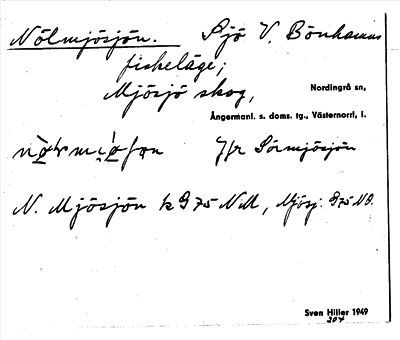 Nölmjösjön. Sjö V. Bönhamns
fiskeläge;
Mjösjö skog,
Nordingrå sn,
Ångermanl. s. doms. tg., Västernorrl, l.
Jfr Sörmjösjön
N. Mjösjön k G 75 NM, Mjösj. G 75 NO.
Sven Hiller 1949
204